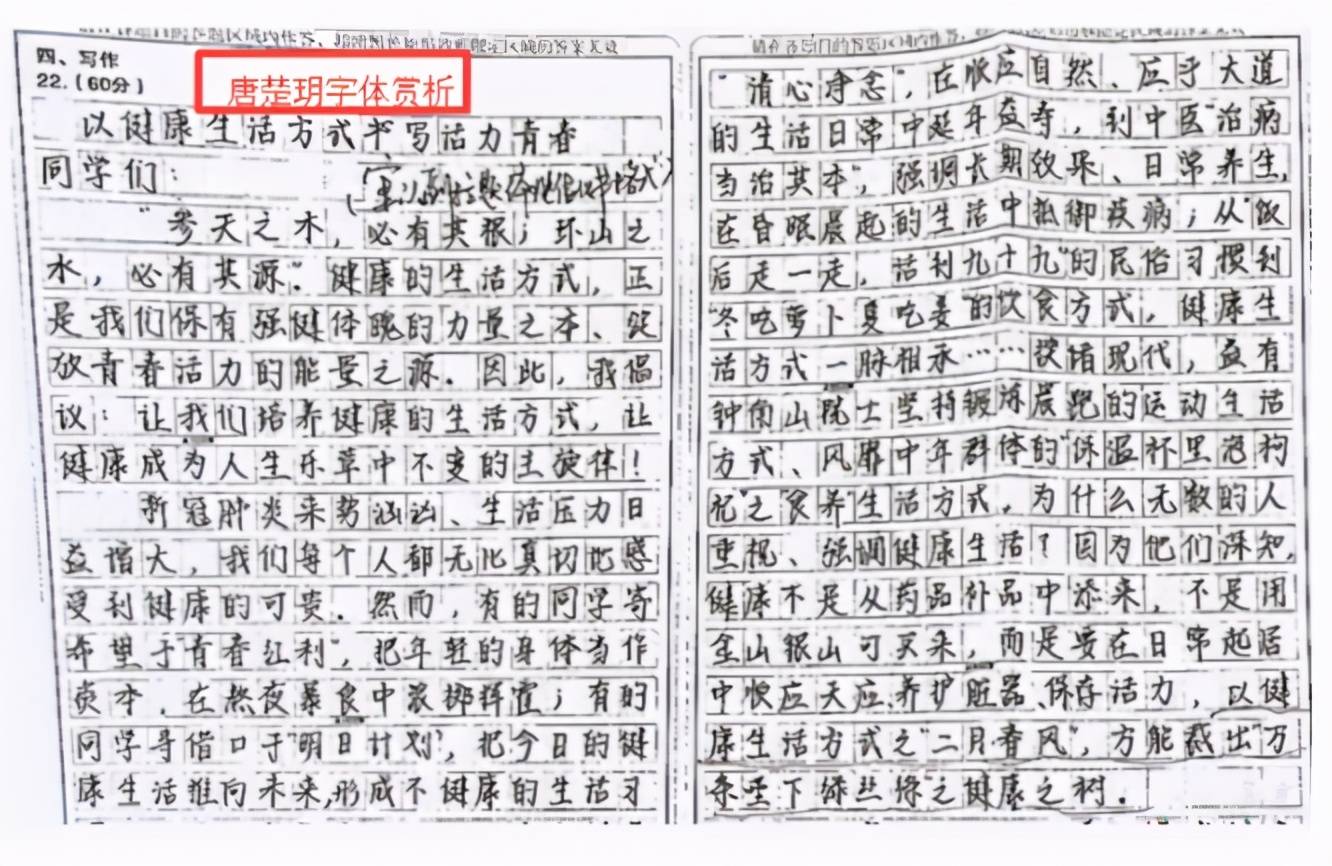 四、写作
22.(60分)
唐楚玥字体赏析
以健康生活方式书写活力青春
同学们:
"参天之木,必有其根;环山之
水,必有其源."健康的生活方式,正
是我们保有强健体魄的力量之本、绽
放青春活力的能量之源.因此,我倡
议:让我们培养健康的生活方式,让
健康成为人生乐章中不变的主旋律!
新冠肺炎来势汹汹、生活压力日
益增大,我们每个人都无比真切地感
受到健康的可贵.然而,有的同学寄
希望于"青春红利",把年轻的身体当作
资本.在熬夜暴食中浪掷挥霍;有的
同学寻借口于"明日计划",把今日的健
康生活推向未来,形成不健康的生活习
"清心净念",在顺应自然、应于大道
的生活日常中延年益寿,到中医"治病
当治其本",强调长期效果、日常养生,
在昏眠晨起的生活中抵御疾病;从"饭
后走一走,活到九十九"的民俗习惯到
"冬吃萝卜夏吃姜"的饮食方式,健康生
活方式一脉相承……放诸现代,益有
钟南山院士坚持锻炼晨跑的运动生活
方式、风靡中年群体的"保温杯里泡枸
杞"之"食养"生活方式,为什么无数的人
重视、强调健康生活?因为他们深知,
健康不是从药品补品中添来,不是用
金山银山可买来,而是要在日常起居
中顺应天应、养护脏器、保存活力,以健
康生活方式之"二月春风",方能裁出"万
条垂下绿丝绦"之健康之树.